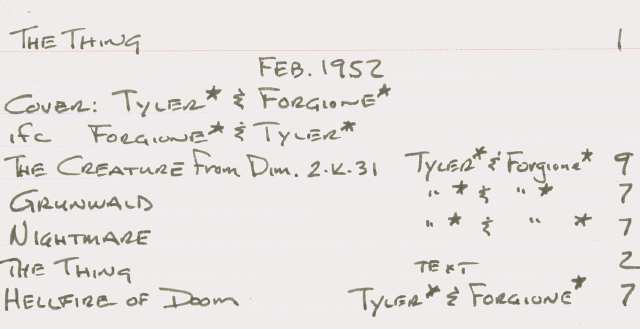 The Thing 1
Feb. 1952
Cover: Tyler* & Forgione*
ifc Forgione* & Tyler*
The Creature From Dim. 2-K-31 Tyler* & Forgione* 9
Grunwald " * & " * 7
Nightmare " * & " * 7
The Thing text 2
Hellfire of Doom Tyler* & Forgione* 7